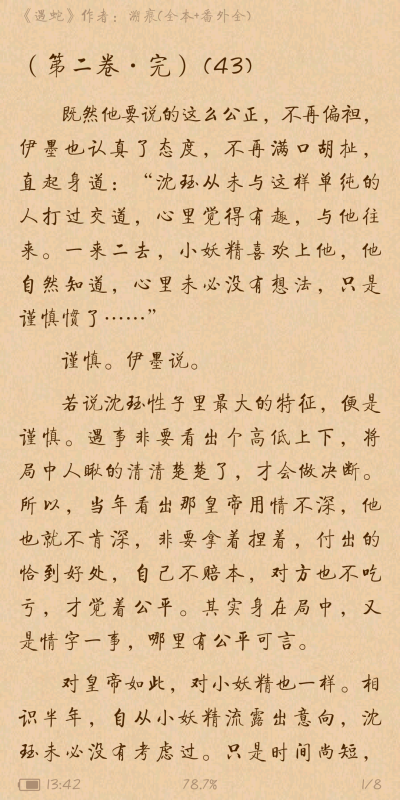 《遇蛇》作者：溯痕(全本+番外全)
（第二卷·完）(43)
既然他要说的这么公正，不再偏袒，
伊墨也认真了态度，不再满口胡扯，
直起身道：“沈珏从未与这样单纯的
人打过交道，心里觉得有趣，与他往
来。一来二去，小妖精喜欢上他，他
自然知道，心里未必没有想法，只是
谨慎惯了……”
谨慎。伊墨说。
若说沈珏性子里最大的特征，便是
谨慎。遇事非要看出个高低上下，将
局中人瞅的清清楚楚了，才会做决断。
所以，当年看出那皇帝用情不深，他
也就不肯深，非要拿着捏着，付出的
恰到好处，自己不赔本，对方也不吃
亏，才觉着公平。其实身在局中，又
是情字一事，哪里有公平可言。
对皇帝如此，对小妖精也一样。相
识半年，自从小妖精流露出意向，沈
珏未必没有考虑过。只是时间尚短，
13:42
78.7%
1/8